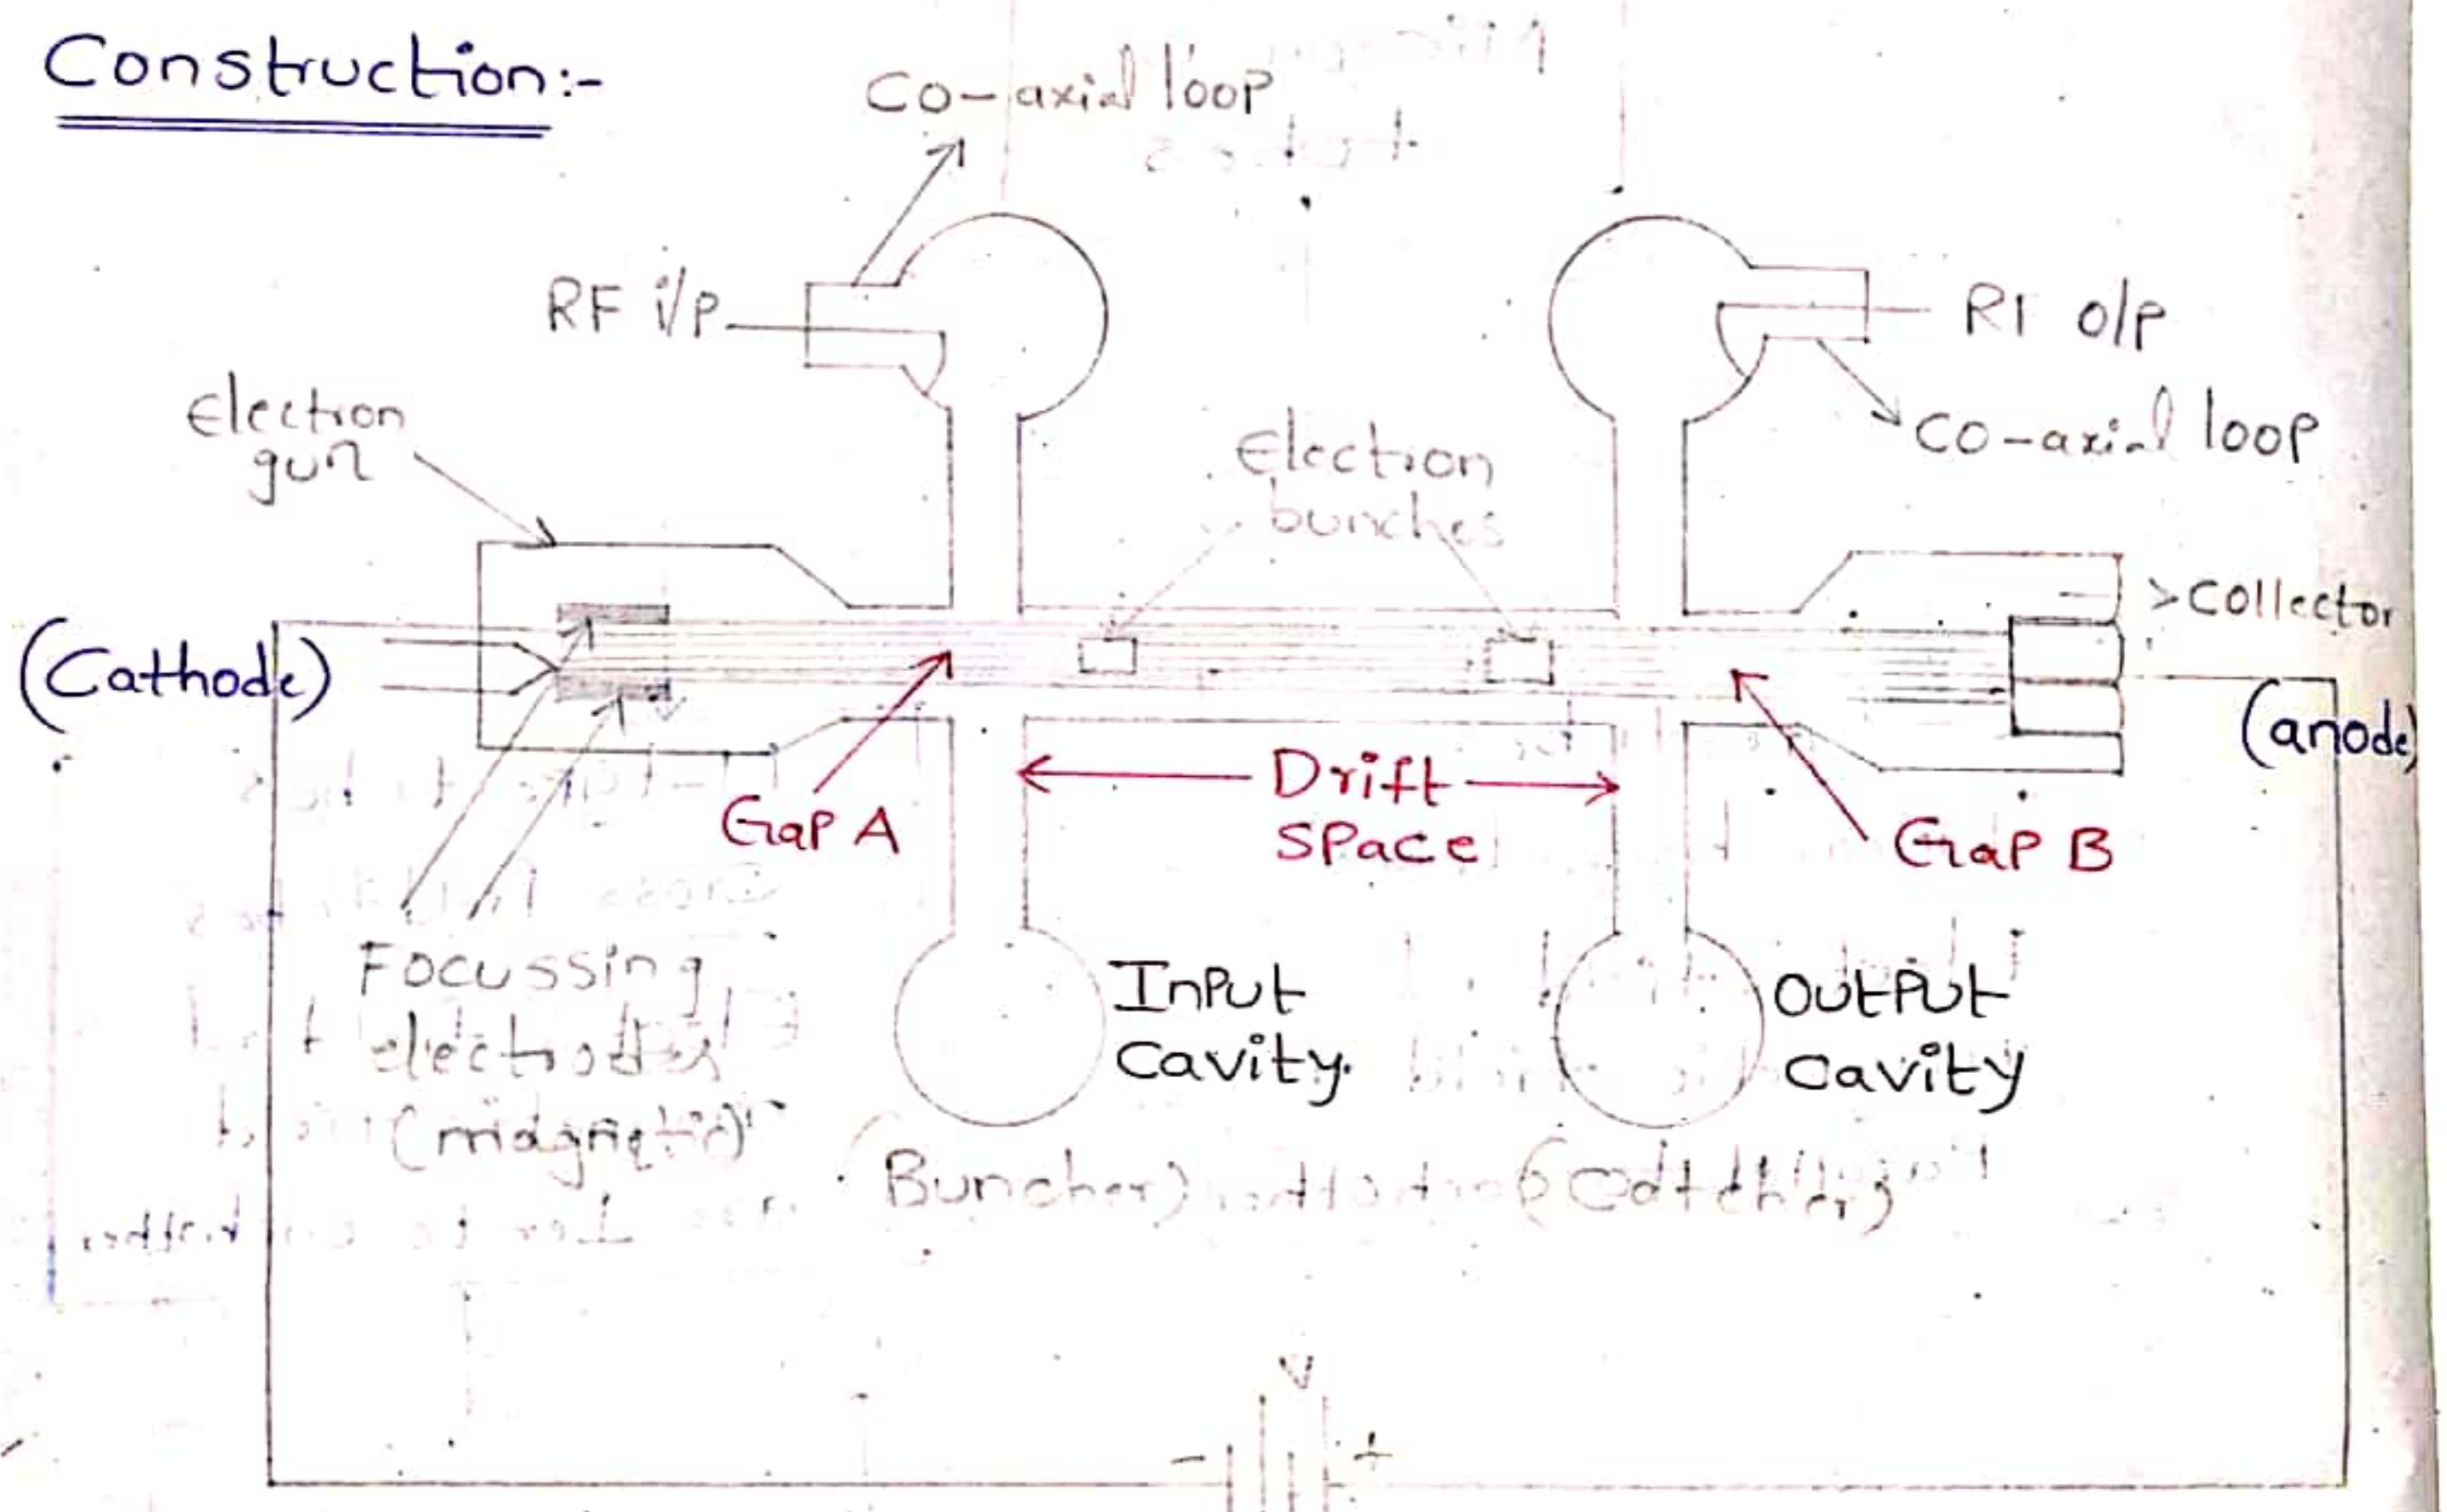 Construction:-
Co-axial loop
RF i/p
RF o/p
Co-axial loop
Electron
gun
Electron
bunches
>Collector
(Cathode)
(anode)
Gap A
Drift
Space
Gap B
Focussing
electrodes
(magnetic)
Input
Cavity.
Output
Cavity
(Buncher)
(Catcher)
V
- +